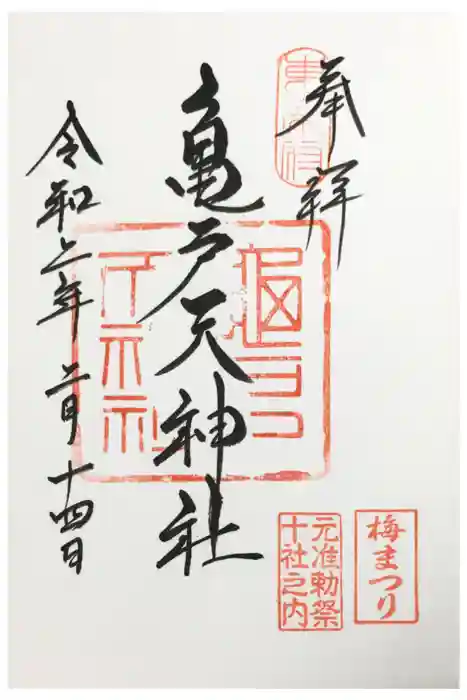 奉拝
亀戸天神社
令和二年二月十四日
梅まつり
元准勅祭
十社之内